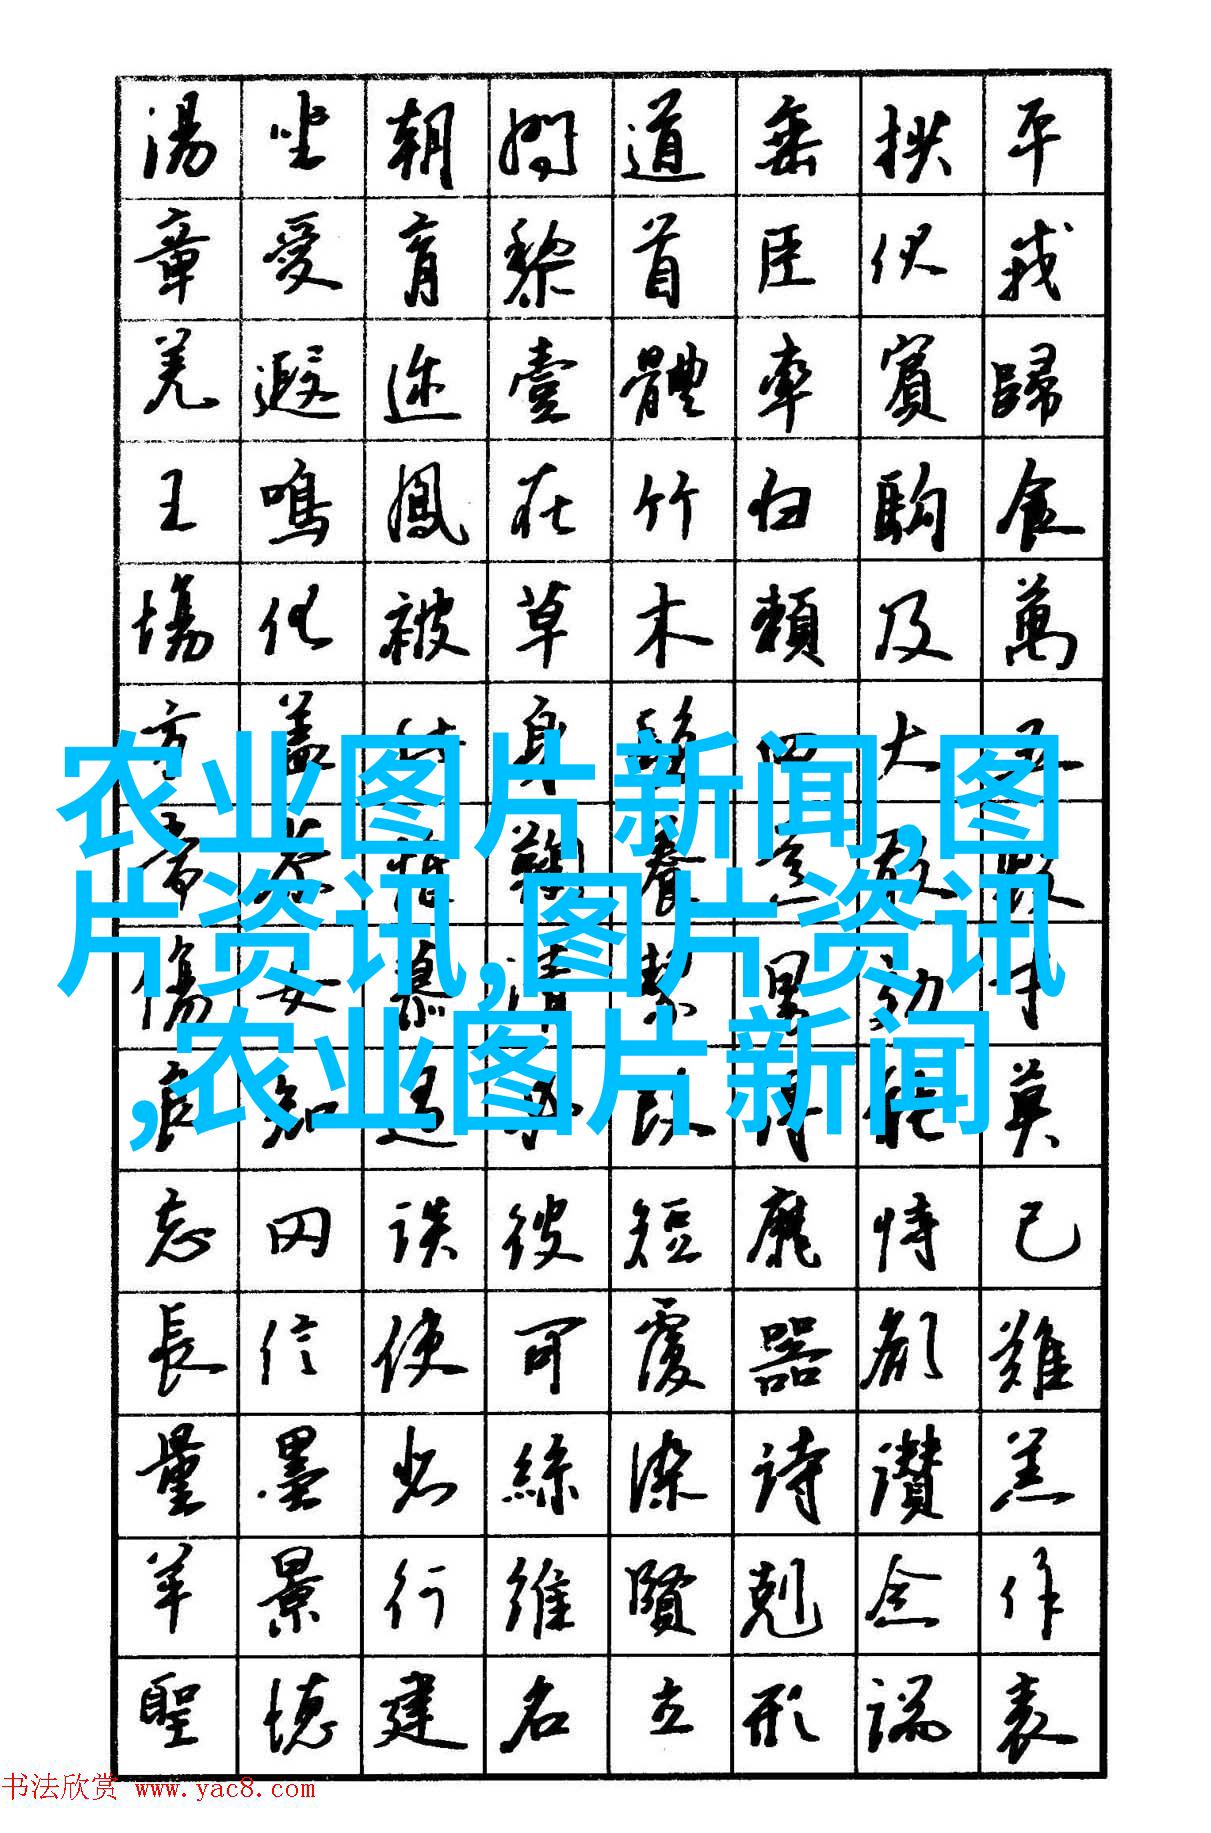 湯坐朝問道垂拱平
章愛育黎首臣伏戎
羌遐迩壹體率賓歸
王鳴鳳在竹白駒食
場化被草木賴及萬
方蓋此身髮四大五
農业图片新闻,图
片资讯,图片资讯
,农业图片新闻
忘罔談彼短靡恃己
長信使可覆器欲難
量墨悲絲染詩讃羔
羊景行維賢剋念作
聖徳建名立形端表
书法欣赏 www.yac8.com